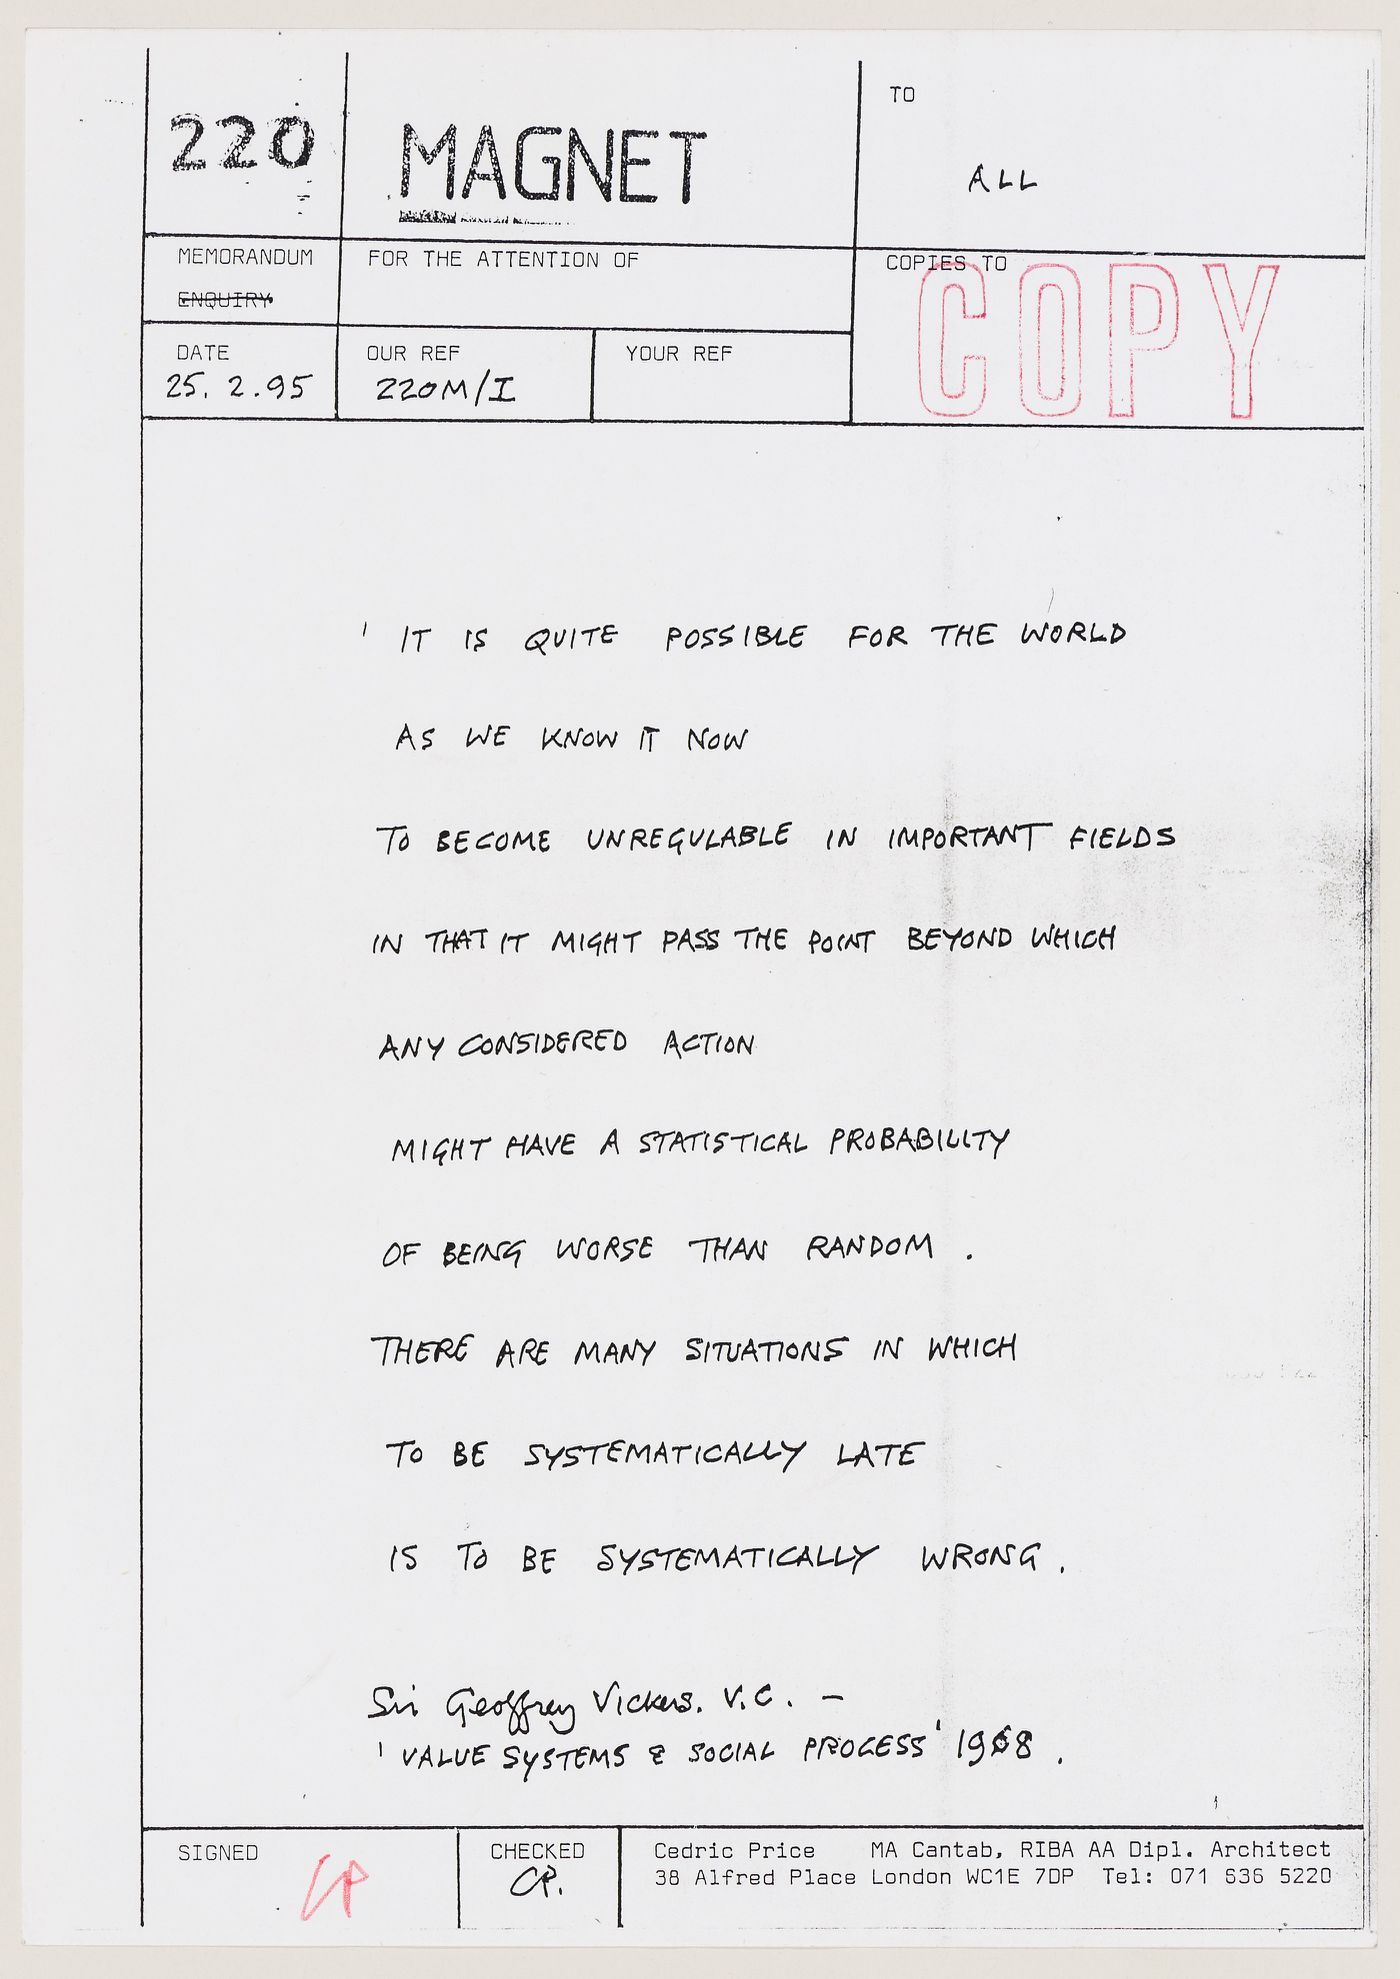 220 MAGNET
TO
ALL
MEMORANDUM
ENQUIRY
FOR THE ATTENTION OF
COPIES TO
COPY
DATE
25. 2.95
OUR REF
220M/I
YOUR REF
' IT IS QUITE POSSIBLE FOR THE WORLD
AS WE KNOW IT NOW
TO BECOME UNREGULABLE IN IMPORTANT FIELDS
IN THAT IT MIGHT PASS THE POINT BEYOND WHICH
ANY CONSIDERED ACTION
MIGHT HAVE A STATISTICAL PROBABILITY
OF BEING WORSE THAN RANDOM .
THERE ARE MANY SITUATIONS IN WHICH
TO BE SYSTEMATICALLY LATE
IS TO BE SYSTEMATICALLY WRONG .
Sir Geoffrey Vickers. V.C. –
' VALUE SYSTEMS & SOCIAL PROCESS ' 1968 .
SIGNED
CP
CHECKED
CP.
Cedric Price MA Cantab, RIBA AA Dipl. Architect
38 Alfred Place London WC1E 7DP Tel: 071 636 5220